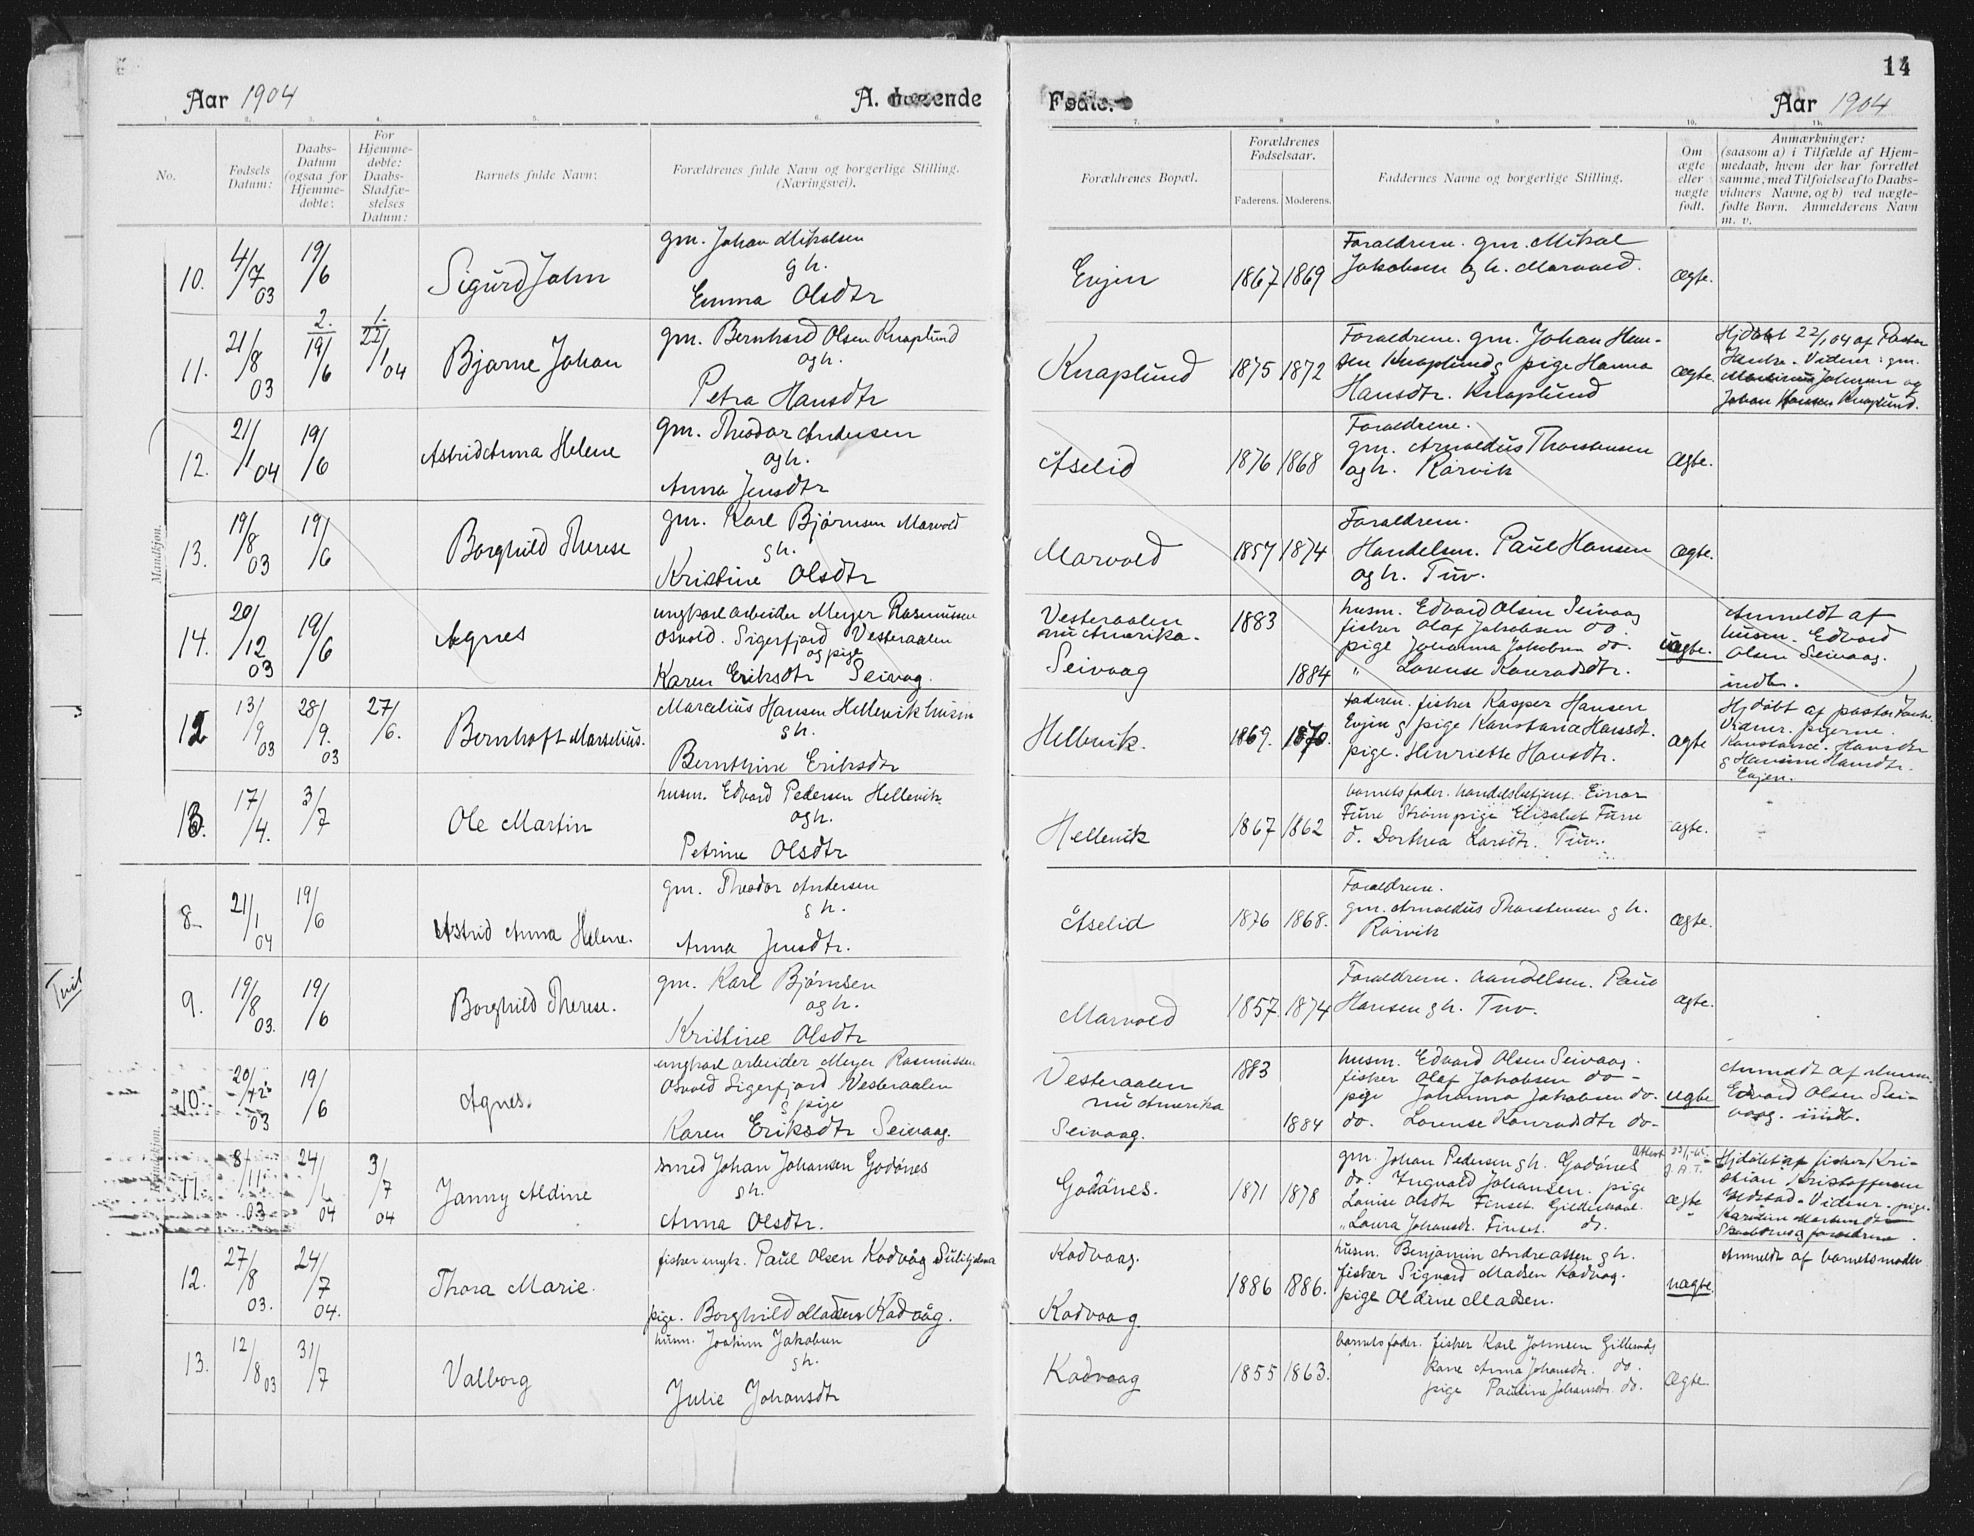 Aar 1904
A. Levende
Fødte.
Aar 1904
14
No.
Fødsels Datum:
Daabs-Datum (ogsaa for Hjemme-døbte:
For Hjemme-døbte: Daabs-Stadfæ-stelses Datum:
Barnets fulde Navn:
Forældrenes fulde Navn og borgerlige Stilling. (Næringsvei).
Forældrenes Bopæl.
Forældrenes Fødselsaar.
Faderens. Moderens.
Faddernes Navne og borgerlige Stilling.
Om ægte eller uægte født.
Anmærkninger: (saasom a) i Tilfælde af Hjem-medaab, hvem der har forrettet samme, med Tilføielse af to Daabs-vidners Navne, og b) ved uægte-fødte Børn. Anmelderens Navn m. v.
Mandkjøn.
10. 4/7 03 19/6 Sigurd John
gm. Johan Mikalsen
gh.
Emma Olsdtr
Evjen 1867 1869
Forældrene. gm. Mikal
Jakobsen og h. Marvold.
ægte.
11. 21/8 03 2. 19/6 1. 22/1 04 Bjarne Johan
gm. Bernhard Olsen Knaplund
ogh.
Petra Hansdtr
Knaplund 1875 1872
Forældrene. gm. Johan Han-
sen Knaplund g pige Hanna
Hansdtr. Knaplund
ægte.
Hjdøbt 22/1 04 af Pastor
Vidner: gm.
Johnsen og
Johan Hansen Knaplund.
12. 21/1 04 19/6 Astrid Anna Helene
gm. Theodor Andersen
ogh.
Anna Jensdtr
Åselid 1876 1868
Forældrene.
gm. Arnoldus Thorstensen
ogh. Rørvik
ægte.
13. 19/8 03 19/6 Borghild Therese
gm. Karl Bjørnsen Marvold
gh.
Kristine Olsdtr
Marvold 1857 1874
Forældrene.
Handelsm. Paul Hansen
ogh. Tuv.
ægte.
14. 20/12 03 19/6 Agnes
ungkarl arbeider Meyer Rasmussen
Osvold. Sigerfjord Vesteraalen
og pige
Karen Eriksdtr Seivag.
Vesteraalen
nu Amerika.
Seivaag
1883 1884
husm. Edvard Olsen Seivaag
fisker Olaf Jakobsen do.
pige Johanna Jakobsen do.
" Lorense Konradsdtr.
uægte.
Anmeldt af
husm. Edvard
Olsen Seivaag.
indt.
12 13/9 03 28/9. 03 27/6. Bernhoft Marselius.
Marcelius Hansen Hellevik husm
gh.
Bernthine Eriksdtr
Hellevik. 1869. 1870.
faderen. fisker Kasper Hansen
Evjen g pige Konstance Hansdt.
pige. Henriette Hansdtr.
ægte
Hjdøbt af pastor
Vidner. pigerne.
Konstance. Hansdtr
g Hansine Hansdtr.
Evjen.
13. 17/4. 3/7 Ole Martin
husm. Edvard Pedersen Hellevik.
ogh.
Petrine Olsdtr
Hellevik 1867 1862
barnets fader. handelsbetjent. Einar
Furre Strøm pige Elisabet Furre
d. Dorthea Larsdtr. Tuv.
ægte.
8 21/1 04 19/6 Astrid Anna Helene.
gm. Theodor Andersen
gh.
Anna Jensdtr.
Åselid 1876 1868.
Forældrene.
gm. Arnoldus Thorstensen g h.
Rørvik
ægte.
9. 19/8 03. 19/6 Borghild Therese.
gm. Karl Bjørnsen
ogh.
Kristine Olsdtr
Marvold 1857. 1874
Forældrene. Handelsm. Paul
Hansen gh. Tuv.
ægte.
10 20/12 03 19/6 Agnes.
ungkarl arbeider Meyer Rasmussen
Osvold Sigerfjord Vesteraalen
g pige
Karen Eriksdtr Seivaag.
Vesteraalen
nu Amerika
Seivaag.
1883 1884
husm. Edvard Olsen Seivaag.
fisker Olaf Jakobsen do-
pige Johanna Jakobsen do.
do. Lorense Konradsdtr do-
uægte
Anmeldt af husm.
Edvard Olsen Sei-
vaag. indt.
11. 8/11 03 24/1 04 3/7 04 Janny Aldine
smed Johan Johansen Godönes
gh.
Anna Olsdtr.
Godönes. 1871 1878
gm. Johan Pedersen gh. Godönes
do. Ingvald Johansen. pige
Louise Olsdtr Finset. Gildeskaal.
" Laura Johansdt. Finset. do.
Attest
ægte
Hjdøbt af fisker Kri-
stian Kristoffersen
Vidner. pige.
12. 27/8 03. 24/7 04. Thora Marie.
fisker ungk. Paul Olsen Kodvåg Sulitjelma
pige. Borghild Madsen Kodvåg.
Kodvaag.
Kodvaag.
1886 1886.
husm. Benjamin Andreassen gh.
fisker Sigvard Madsen Kodvåg.
pige Oldine Madsen.
uægte.
Anmeldt af barnets moder
13. 12/8 03 31/7 Valborg
husm. Joakim Jakobsen
gh.
Julie Johansdtr
Kodvaag 1855 1863.
barnets fader. fisker Karl Johnsen Gillesvåg
kone Anna Johansdtr. do.
pige Pauline Johansdtr do.
ægte.